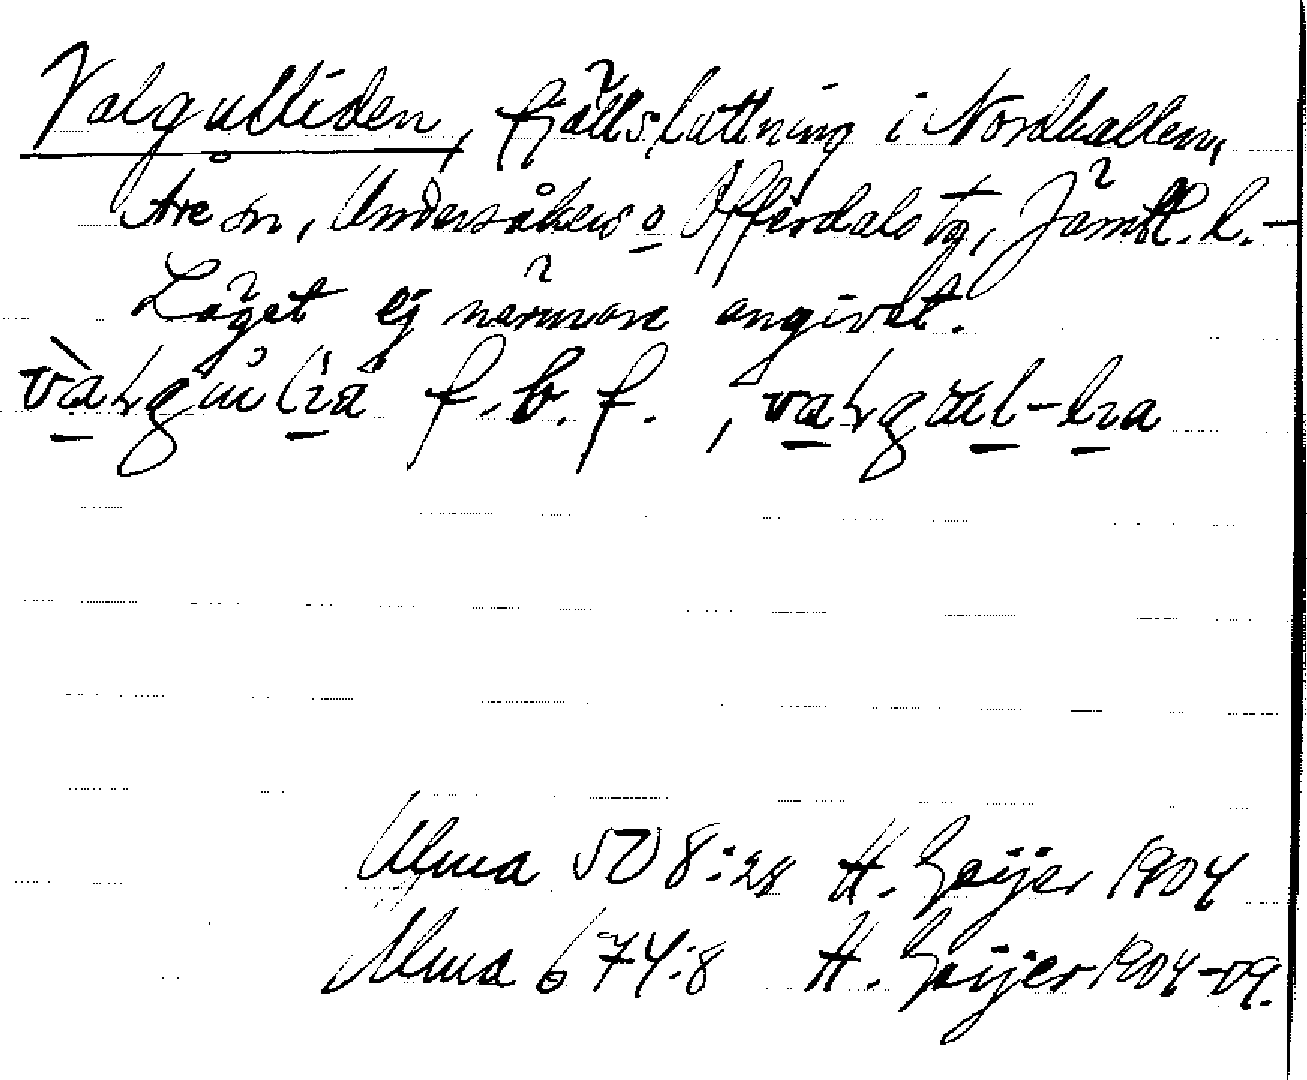 Valgulliden, fjällsluttning i Nordhallen,
Åre sn, Undersåkers o Offerdals tg, Jämtl. l. -
Läget ej närmare angivet.
f. b. f. ,
Ulma 508:28 H. Geijer 1904
Ulma 674:8 H. Geijer 1904-09.